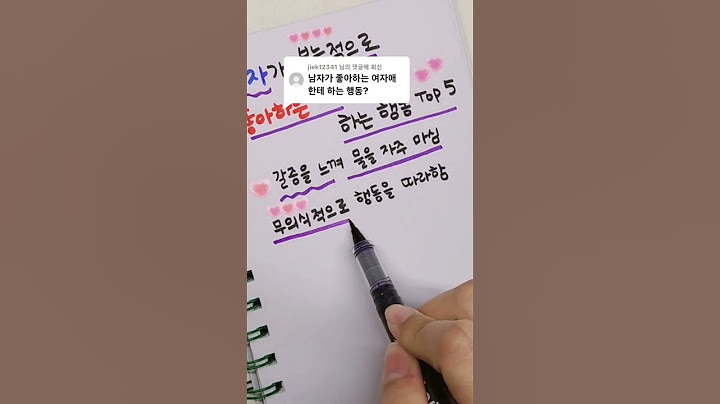 jiek12341 님의 댓글에 회신
남자가 좋아하는 여자애
한테 하는 행동?
자가 본능적으로
좋아하는
하는 행동 Top 5
갈증을 느껴 물을 자주 마심
무의식적으로 행동을 따라함